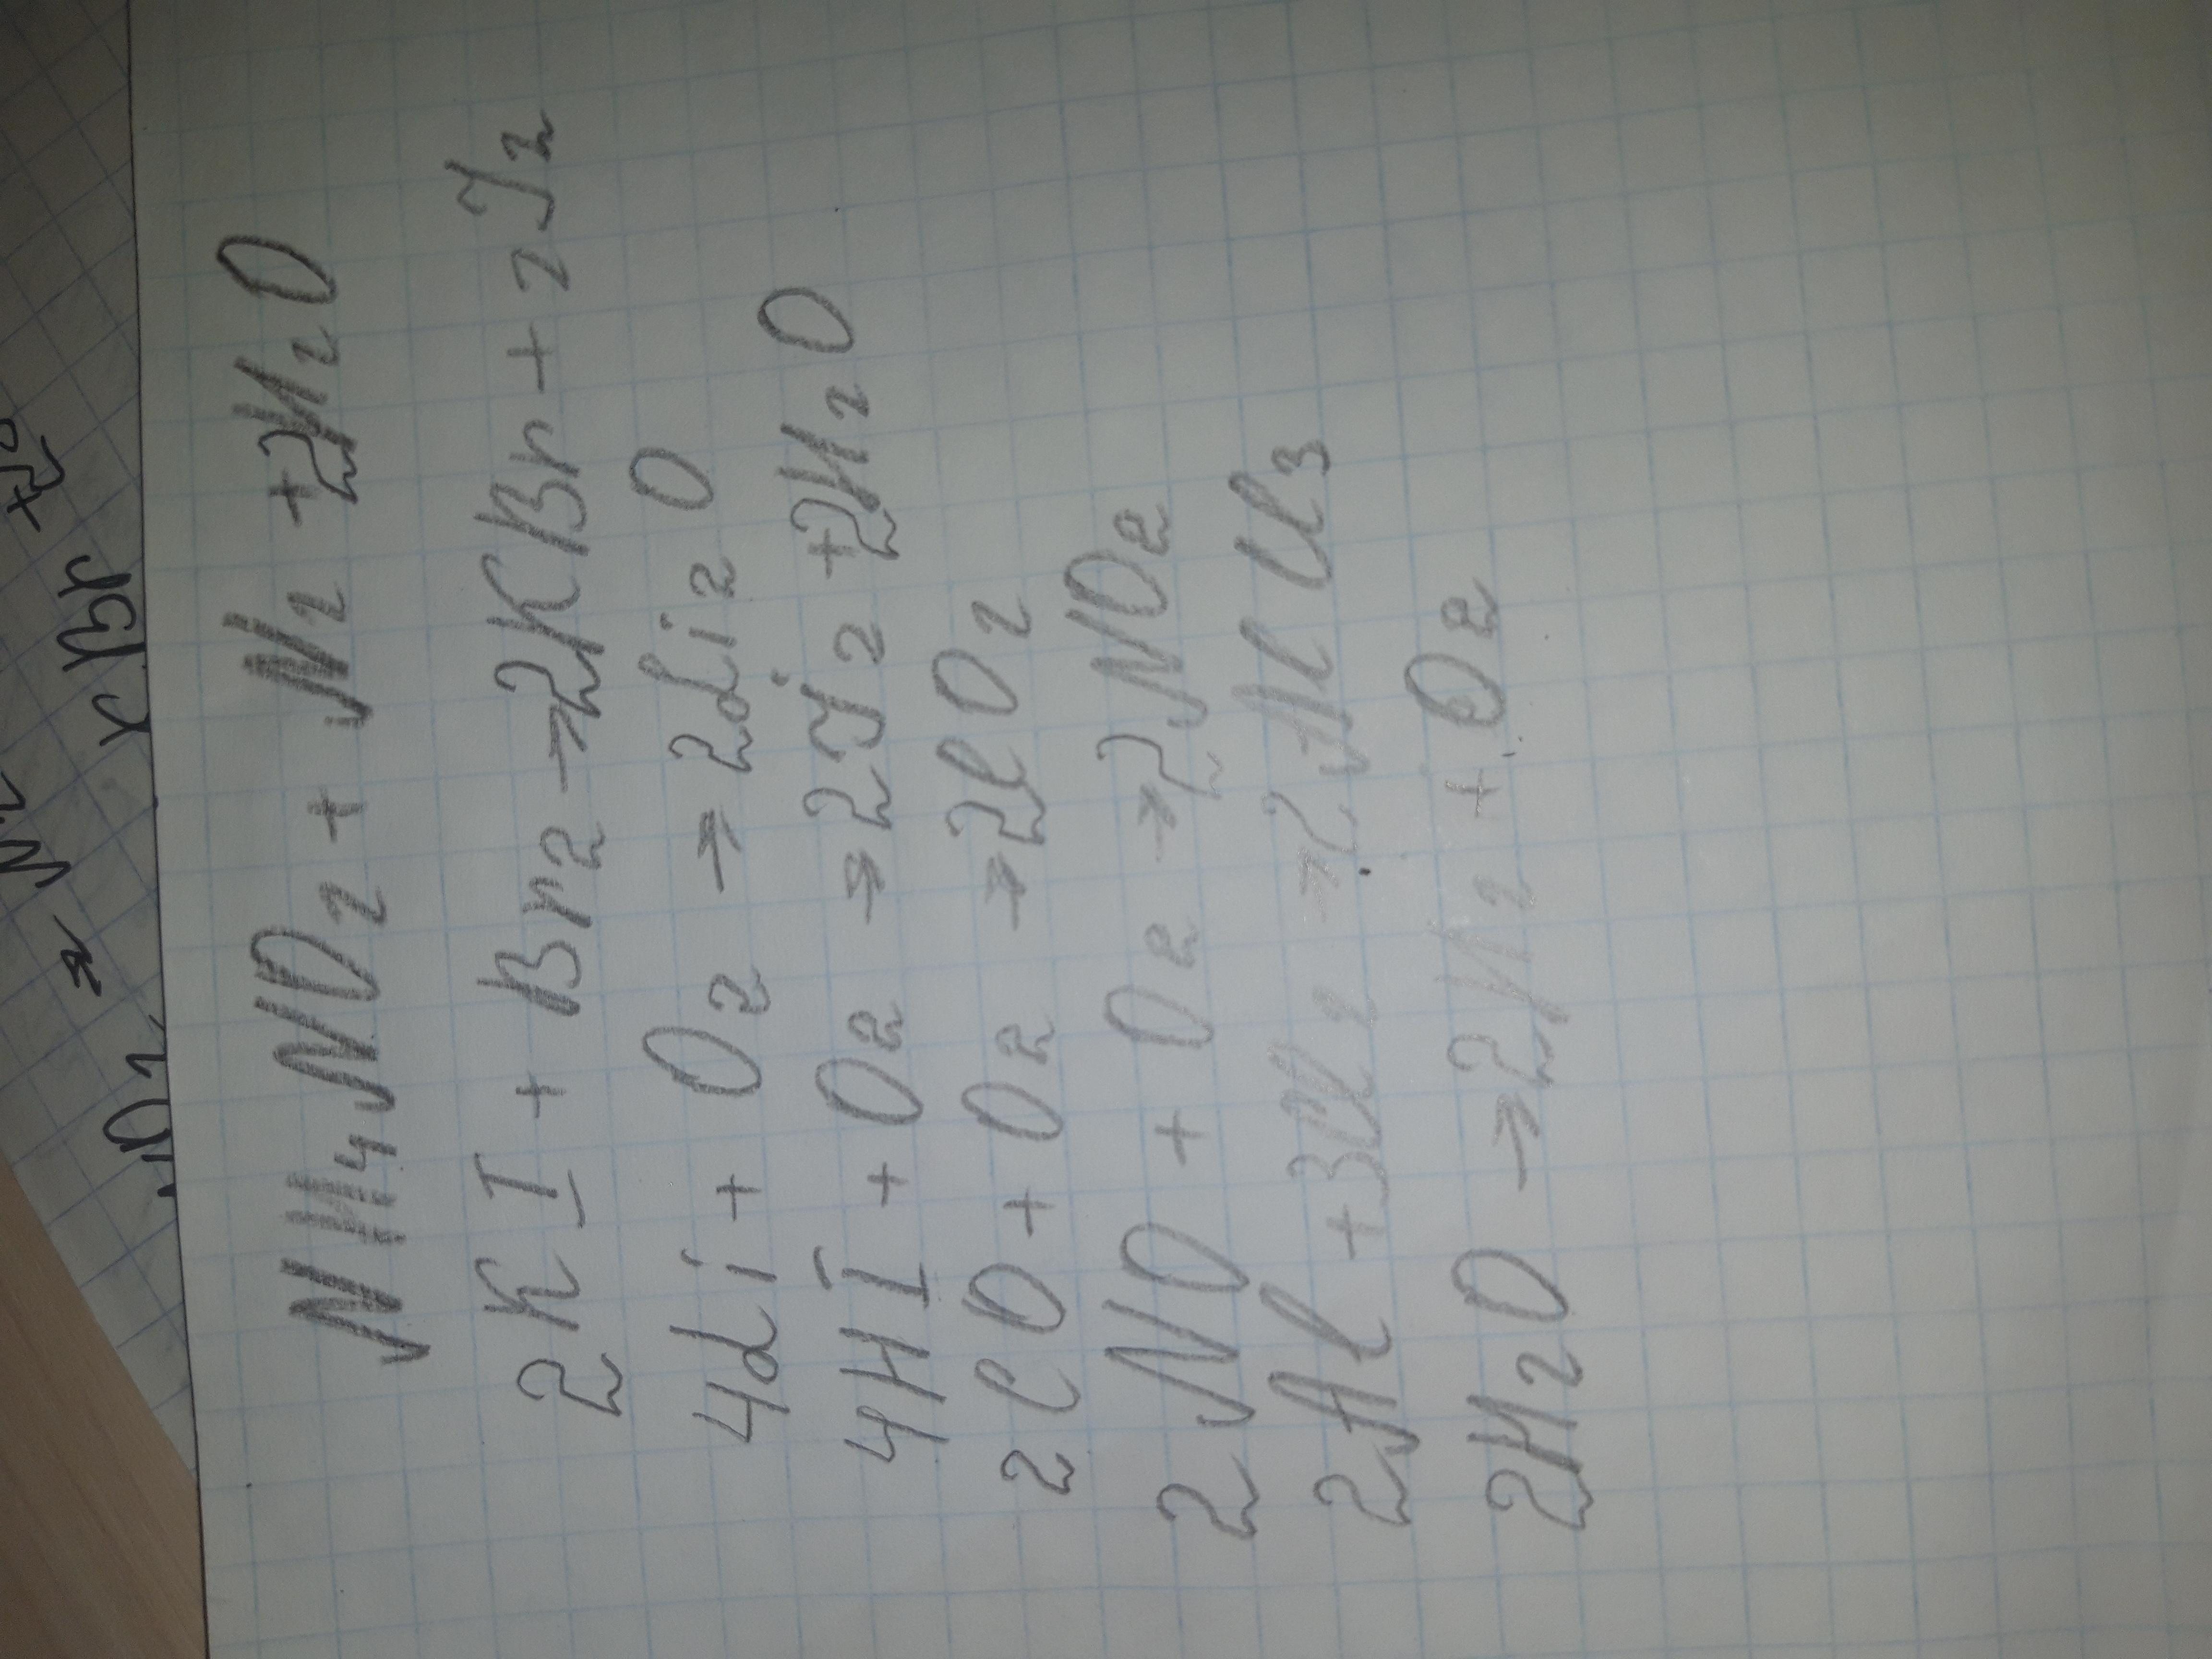 NH₄NO₂ + N₂ + 2H₂O
2KI + Br₂ → 2KBr + 2J₂
4Li + O₂ → 2Li₂O
4HI + O₂ → 2J₂ + 2H₂O
2CO + O₂ → 2CO₂
2NO + O₂ → 2NO₂
2Al + 3Cl₂ → 2AlCl₃
2H₂O → 2H₂ + O₂